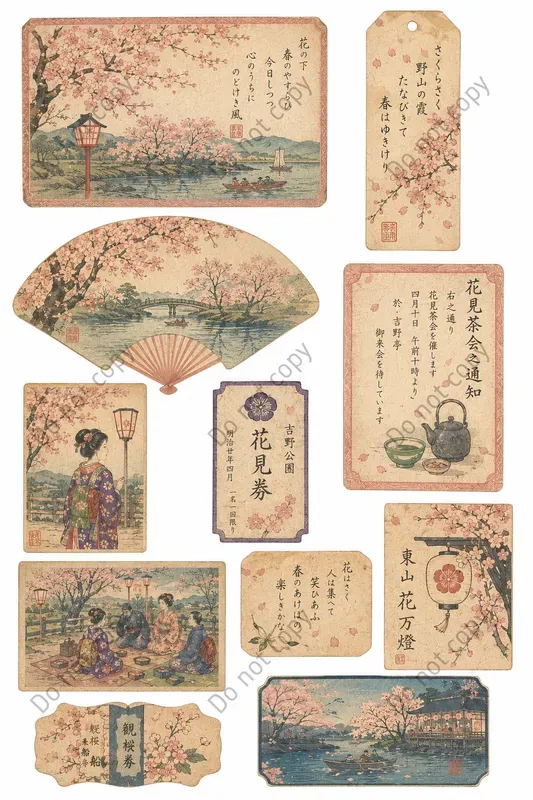 花の下
春のやすらひ
今日しつつ
心のうちに
のどけき風
さくらさく
野山の霞
たなびきて
春はゆきけり
花見茶会之通知
右之通り
花見茶会を催します
四月十日 午前十時より
於・吉野亭
御来会を待しています
吉野公園
花見券
明治廿年四月
一名一回限り
東山 花万燈
花はさく
人は集へて
笑ひあふ
春のあけぼの
楽しきかな
観桜券
観桜船
乗船券
Do not copy
Do not copy
Do not copy
Do not copy
Do not copy
Do not copy
Do not copy
Do not copy
Do not copy
Do not copy
Do not copy
Do not copy